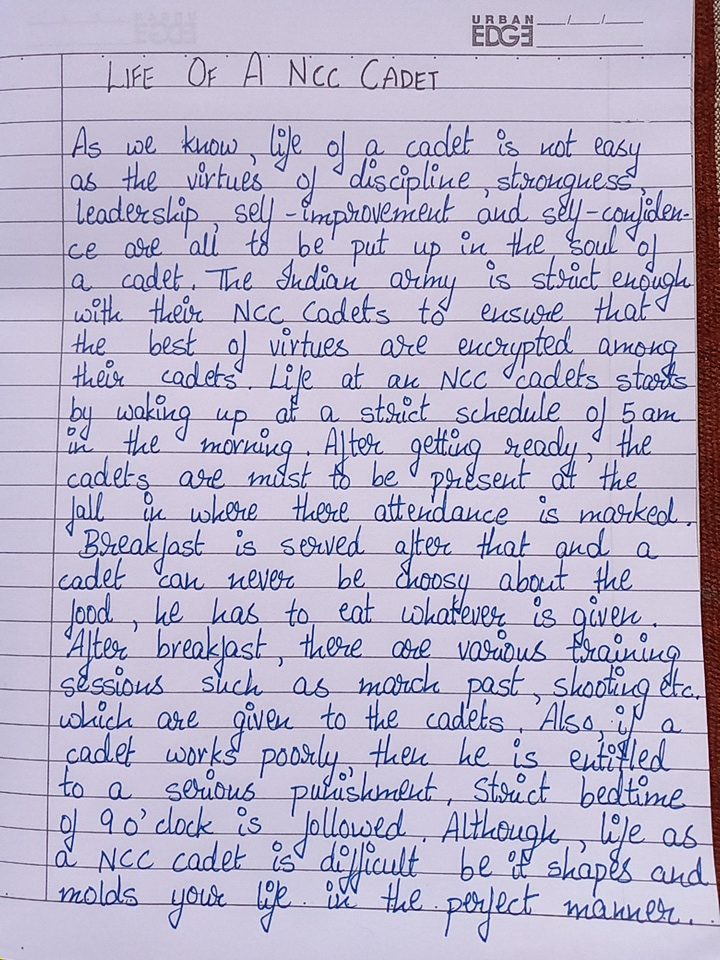 URBAN
EDGE
LIFE OF A NCC CADET
As we know, life of a cadet is not easy
as the virtues of discipline, strongness,
leadership, self-improvement and self-confiden-
ce are all to be put up in the soul of
a cadet. The Indian army is strict enough
with their NCC Cadets to ensure that
the best of virtues are encrypted among
their cadets. Life at an NCC cadets starts
by waking up at a strict schedule of 5 am
in the morning. After getting ready, the
cadets are must to be present at the
fall in where there attendance is marked.
Breakfast is served after that and a
cadet can never be choosy about the
food, he has to eat whatever is given.
After breakfast, there are various training
sessions such as march past, shooting etc.
which are given to the cadets. Also, if a
cadet works poorly, then he is entitled
to a serious punishment. Strict bedtime
of 9 o'clock is followed. Although, life as
a NCC cadet is difficult be it shapes and
molds your life in the perfect manner.